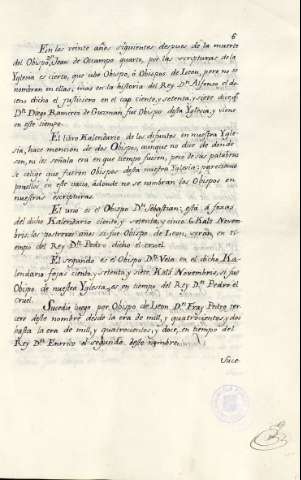 6
En los veinte años siguientes despues de la muerte
del Obispo Juan de Ocampo quarto, por las escripturas de la
Yglesia es cierto, que ubo Obispo, ò Obispos de Leon, pero no se
nombran en ellas; mas en la historia del Rey Dn. Alfonso el
dicho el justiciero en el cap. ciento, y setenta, y siete dice, que
Dn. Diego Ramirez de Guzman fue Obispo desta Yglesia, y viene
en este tiempo.
El libro Kalendario de los difuntos en nuestra Ygle-
sia, hace mencion de dos Obispos, aunque no dice de donde
son, ni se señala en que tiempo fueron, pero de sus palabras
se colige que fueron Obispos desta nuestra Yglesia; pareciome
ponellos en este vacio, adonde no se nombran los Obispos en
nuestras escripturas.
El uno es el Obispo Dn. Sebastian; està à fojas
del dicho Kalendario ciento, y setenta, y cinco. Kals Novem-
bris: los posteros años si fue Obispo de Leon, seràn, en ti-
empo del Rey Dn. Pedro dicho el cruel.
El segundo es el Obispo Dn. Vela en el dicho Ka-
lendario fojas ciento, y setenta, y siete. Kals Novembris, si fue
Obispo de nuestra Yglesia, es en tiempo del Rey Dn. Pedro el
cruel.
Sucediò luego por Obispo de Leon Dn. Fray Pedro ter-
cero deste nombre desde la era de mill, y quatrocientos, y dos
hasta la era de mill, y quatrocientos, y doce, en tiempo del
Rey Dn. Enrrico el segundo deste nombre.
Suce-